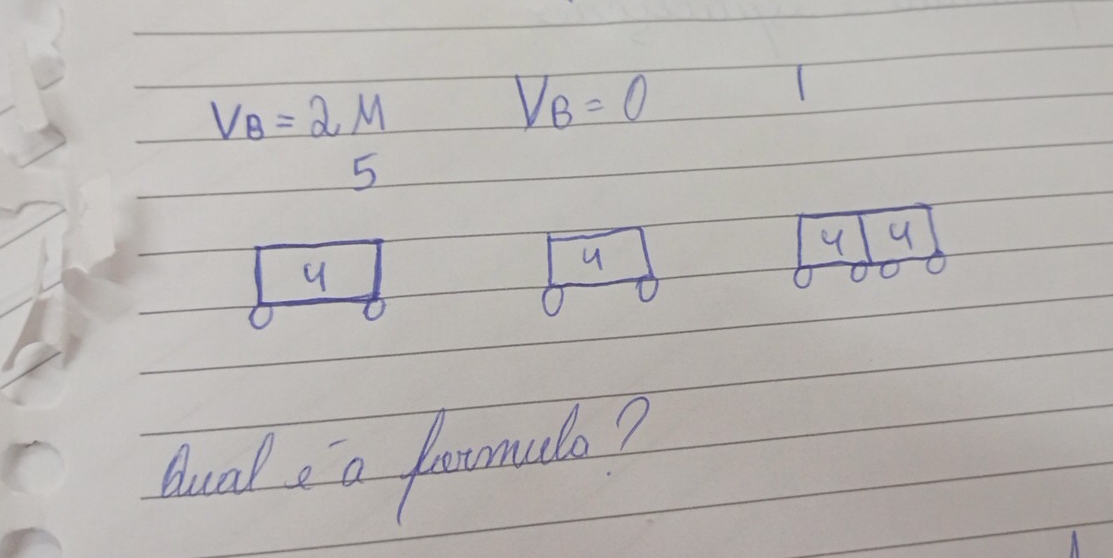 VB = 2 M VB = 0 1
5
4 4 4 4
Qual é a formula?